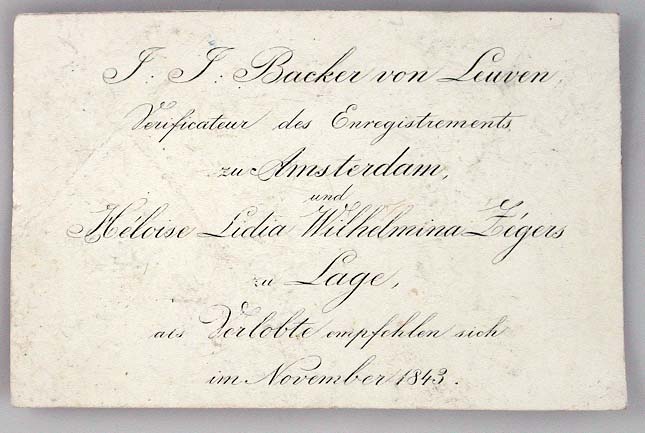 J. J. Backer von Leuven,
Verificateur des Enregistrements
zu Amsterdam,
und
Héloise Lidia Wilhelmina Zégers
zu Lage,
als Verlobte empfehlen sich
im November 1843.